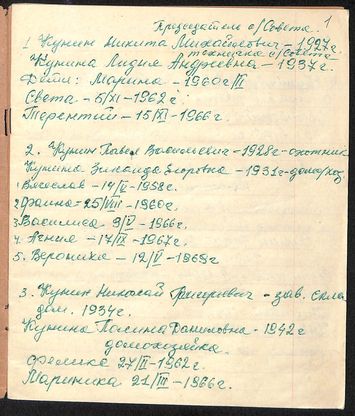 Председатель с/Совета. 1
1 Кунин Никита Михайлович - 1927г.
техничка с/совета
Кунина Лидия Андреевна - 1937г.
Дети: Марина - 1960г/III
Света - 6/XI - 1962г.
Терентий - 15/XI - 1966г.
2. Кунин Павел Васильевич - 1928г - охотник
Кунина Зинаида Егоровна - 1931г - домохоз
1 Вячеслав - 14/V - 1958г.
2 Фаина - 25/VIII - 1960г.
3 Василиса 9/V - 1966г.
4. Агния - 17/IX - 1967г.
5. Вероника - 12/V - 1969г
3. Кунин Николай Григорьевич - зав. скла
дом. 1934г.
Кунина Полина Даниловна - 1942г
домохозяйка.
27/II - 1962г.
Мариника 21/III - 1966г.